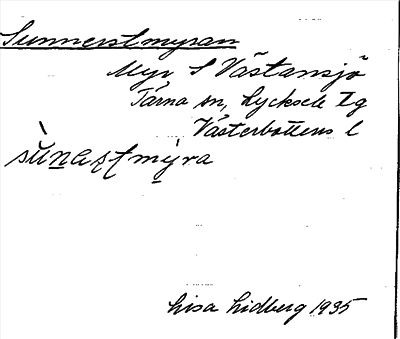 Sunnerstmyran
Myr S Västansjö
Tärna sn, Lycksele lg
Västerbottens l
sùnastmýra
Lisa Lidberg 1935